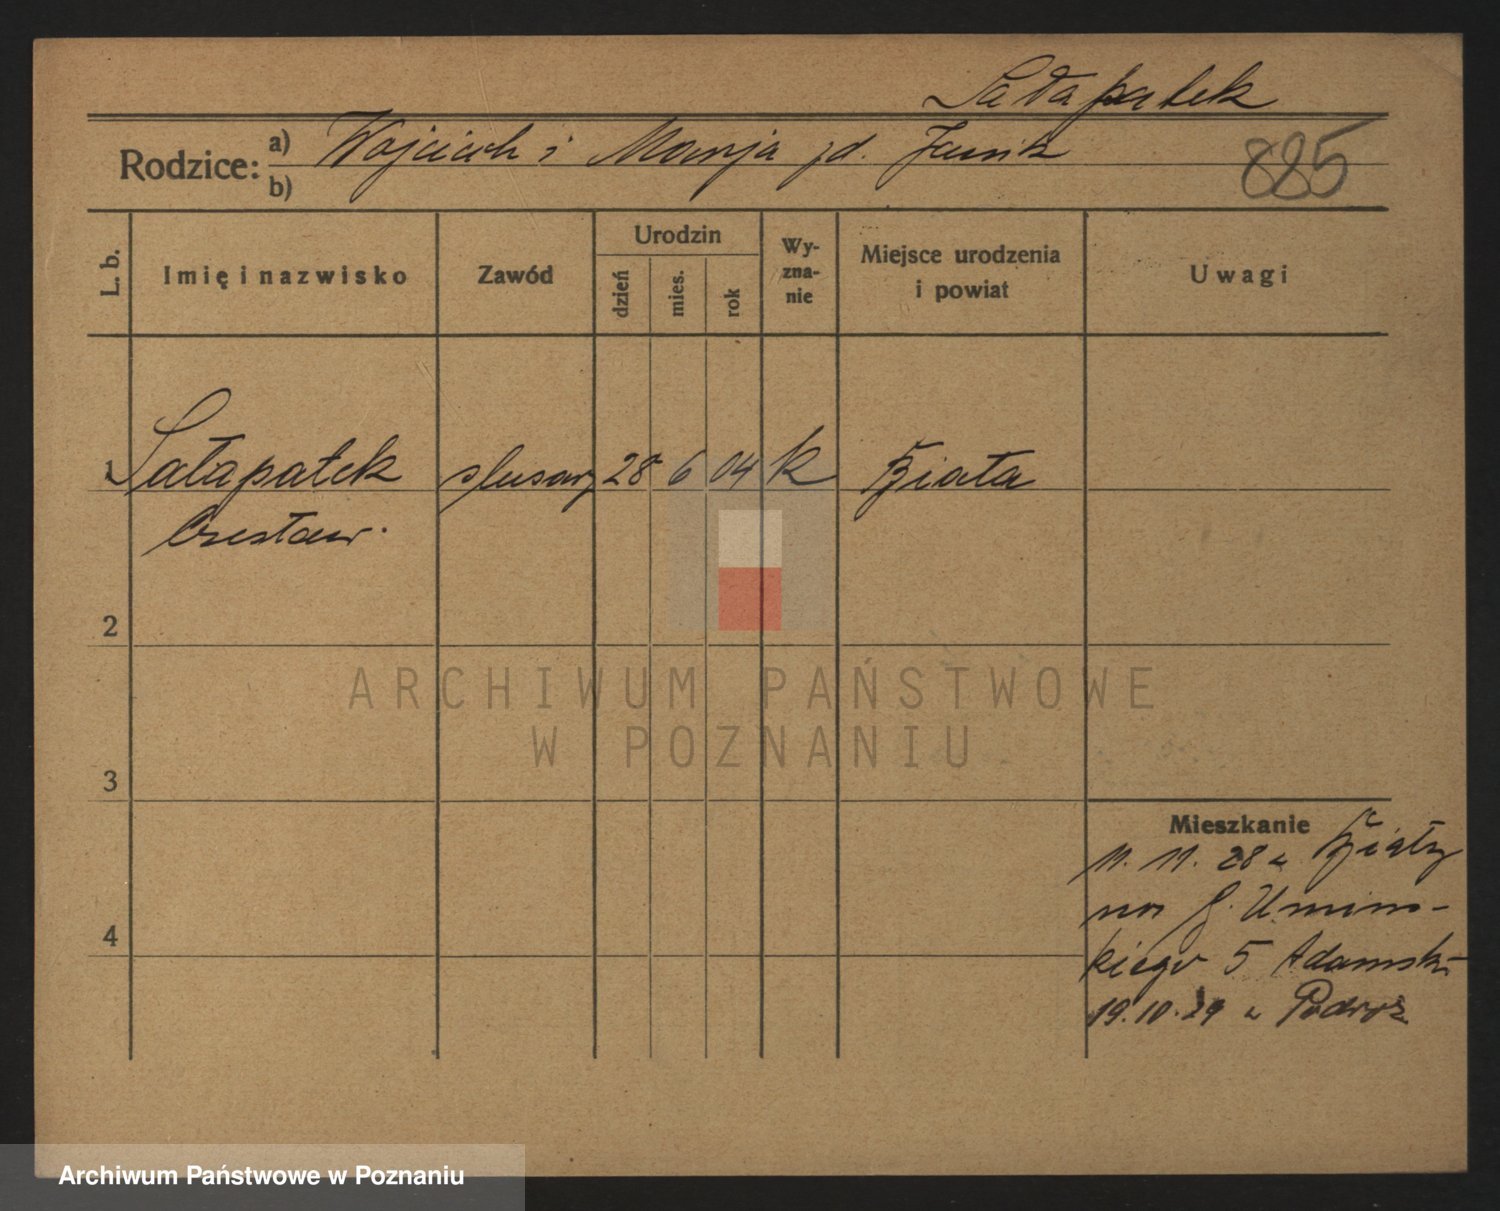 Sałapatek
Rodzice: a) Wojciech i Marja zd. Janik
b)
885
L. b.
Imię i nazwisko
Zawód
Urodzin
dzień
mies.
rok
Wy-
zna-
nie
Miejsce urodzenia
i powiat
Uwagi
1 Sałapatek ślusarz 28 6 04 k Biała
Czesław.
2
3
4
Mieszkanie
11. 11. 28 z Białej
na G. Umińs-
kiego 5 Adamski
19.10.29 w Podróż
ARCHIWUM PAŃSTWOWE
W POZNANIU
Archiwum Państwowe w Poznaniu